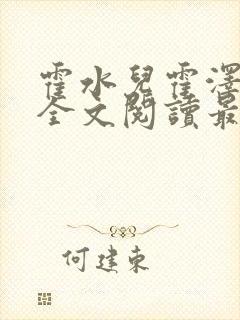 霍水兒霍澤
全文閱讀最
何建東